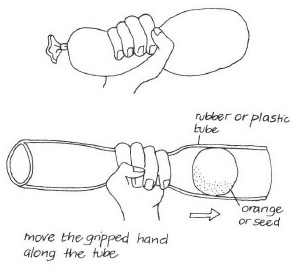 rubber or plastic
tube
orange
or seed
move the gripped hand
along the tube